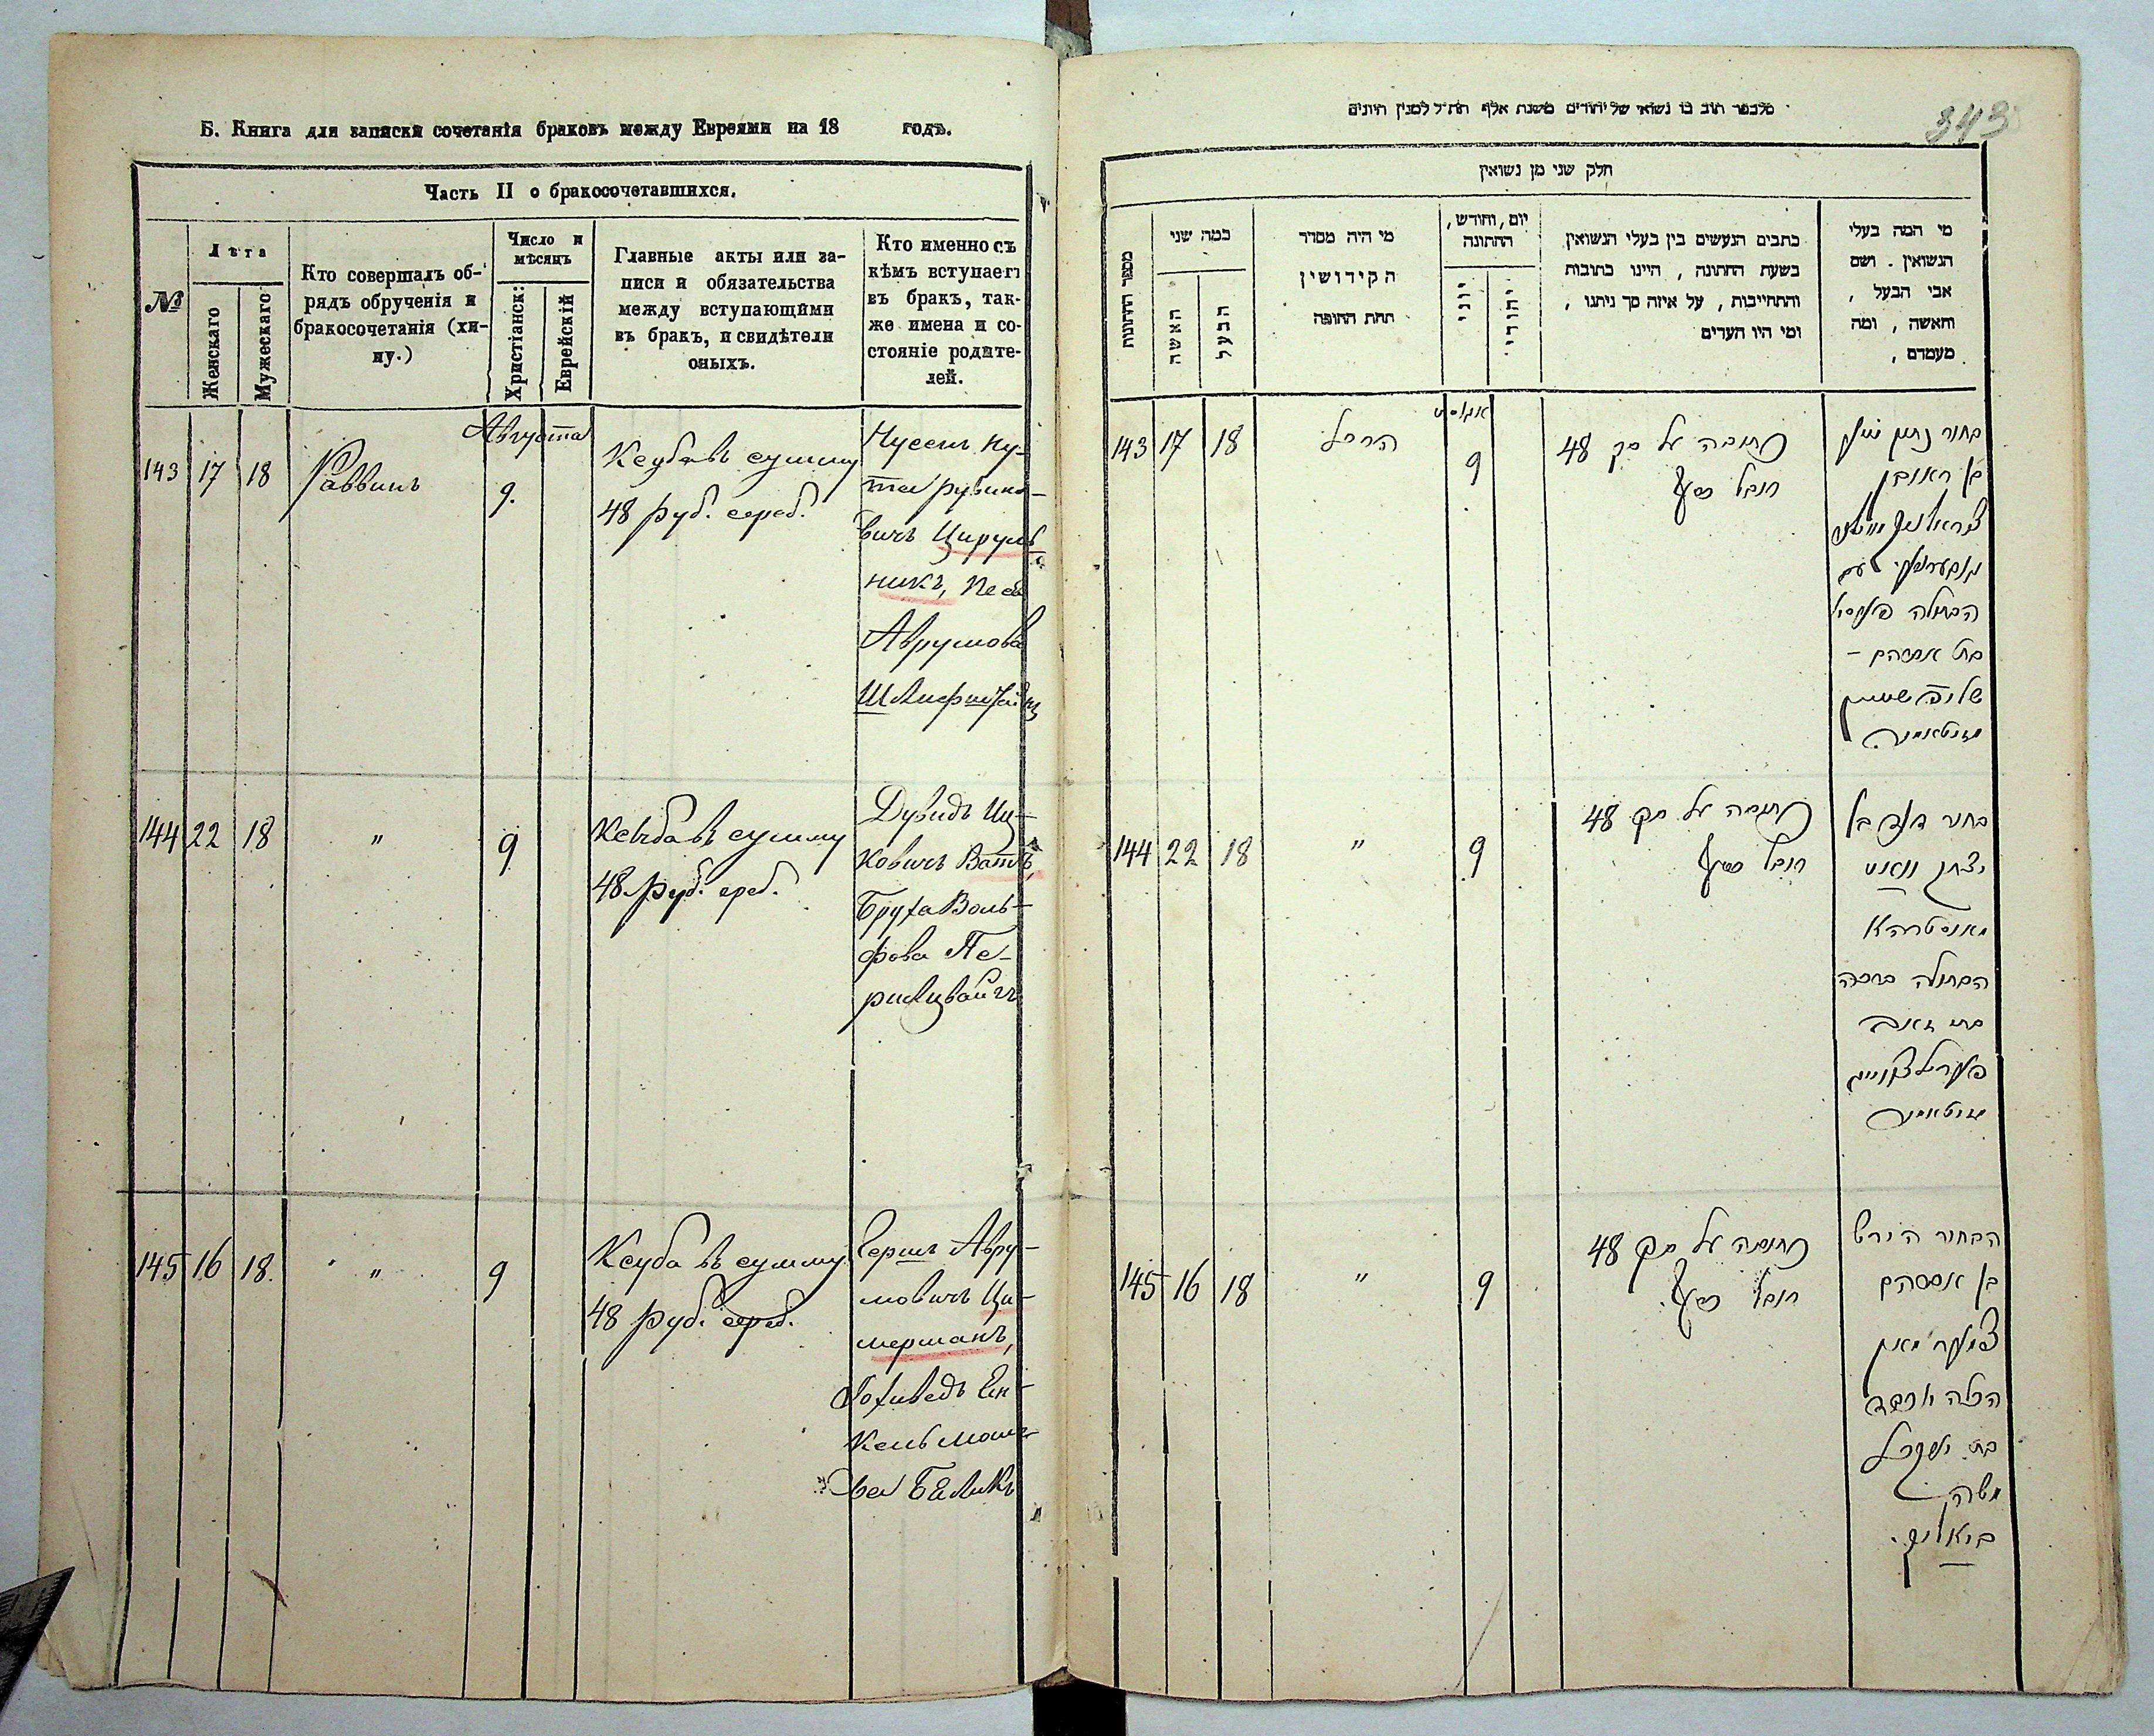 Б. Книга для записки сочетанія браковъ между Евреями на 18 годъ.
Часть II о бракосочетавшихся.
№
Лѣта
Женскаго
Мужескаго
Кто совершалъ об-
рядъ обрученія и
бракосочетанія (хи-
пу.)
Число и
мѣсяцъ
Христіанск:
Еврейскій
Главные акты или за-
писи и обязательства
между вступающими
въ бракъ, и свидѣтели
оныхъ.
Кто именно съ
кѣмъ вступаетъ
въ бракъ, так-
же имена и со-
стояніе родите-
лей.
143 17 18 Раввинъ
Августа
9.
Ксуба въ сумму
48 руб. сереб.
Нусенъ Ну-
та Рувино-
вичъ Цируль
никъ, Песя
Аврумова
144 22 18 " 9
Ксуба въ сумму
48 руб. сереб.
Дувидъ Иц-
ковичъ Ватъ,
Бруха Воль-
фова Пе-
рильцвайгъ
145 16 18. " 9
Ксуба въ сумму
48 руб. сереб.
Гершъ Авру-
мовичъ Ци-
мерманъ,
Іохиведъ Ен-
кель Мошко-
ва Бяликъ
343
חלק שני מן נשואין
מספר החתונות
כמה שני
האשה
הבעל
מי היה מסדר
הקידושין
תחת החופה
יום, וחודש,
החתונה
יוני
יהודי
כתבים הנעשים בין בעלי הנשואין
בשעת החתונה, היינו כתובות
והתחייבות, על איזה סך ניתנו,
ומי היו העדים
מי המה בעלי
הנשואין. ושם
אבי הבעל,
והאשה, ומה
מעמדם,
143 17 18
אוגוסט
9
כתובה על סך 48
רובל כסף
בן ראובן
הבתולה
בת אברהם
144 22 18 " 9
כתובה על סך 48
רובל כסף
בחור דוד בן
יצחק וואט
הבתולה ברכה
בת זאב
פערילצווייג
145 16 18 " 9
כתובה על סך 48
רובל כסף
הבחור הירש
בן אברהם
צימערמאן
הכלה יוכבד
בת יענקל
משה
ביאליק.